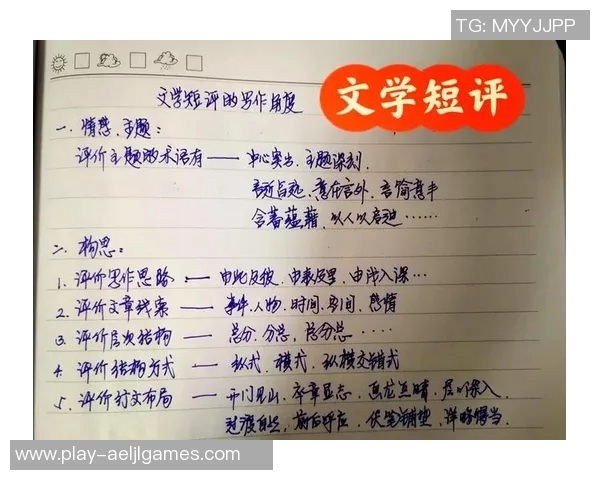 TG: MYYJJPP
文学短评
文学短评的写作角度
一、情感、主题:
评价主题的术语有——中心突出、主题深刻、
言近旨远、意在言外、言简意丰
含蓄蕴藉、以人以启迪……
二、构思:
1、评价写作思路——由此及彼、由表及里、由浅入深…
2、评价文章线索——事件、人物、时间、空间、感情
3、评价层次结构——总分、分总、总分总……
4、评价结构方式——纵式、横式、纵横交错式
5、评价行文布局——开门见山、卒章显志、画龙点睛、层层深入、
过渡自然、前后呼应、伏笔铺垫、详略得当、
www.play-aeljlgames.com